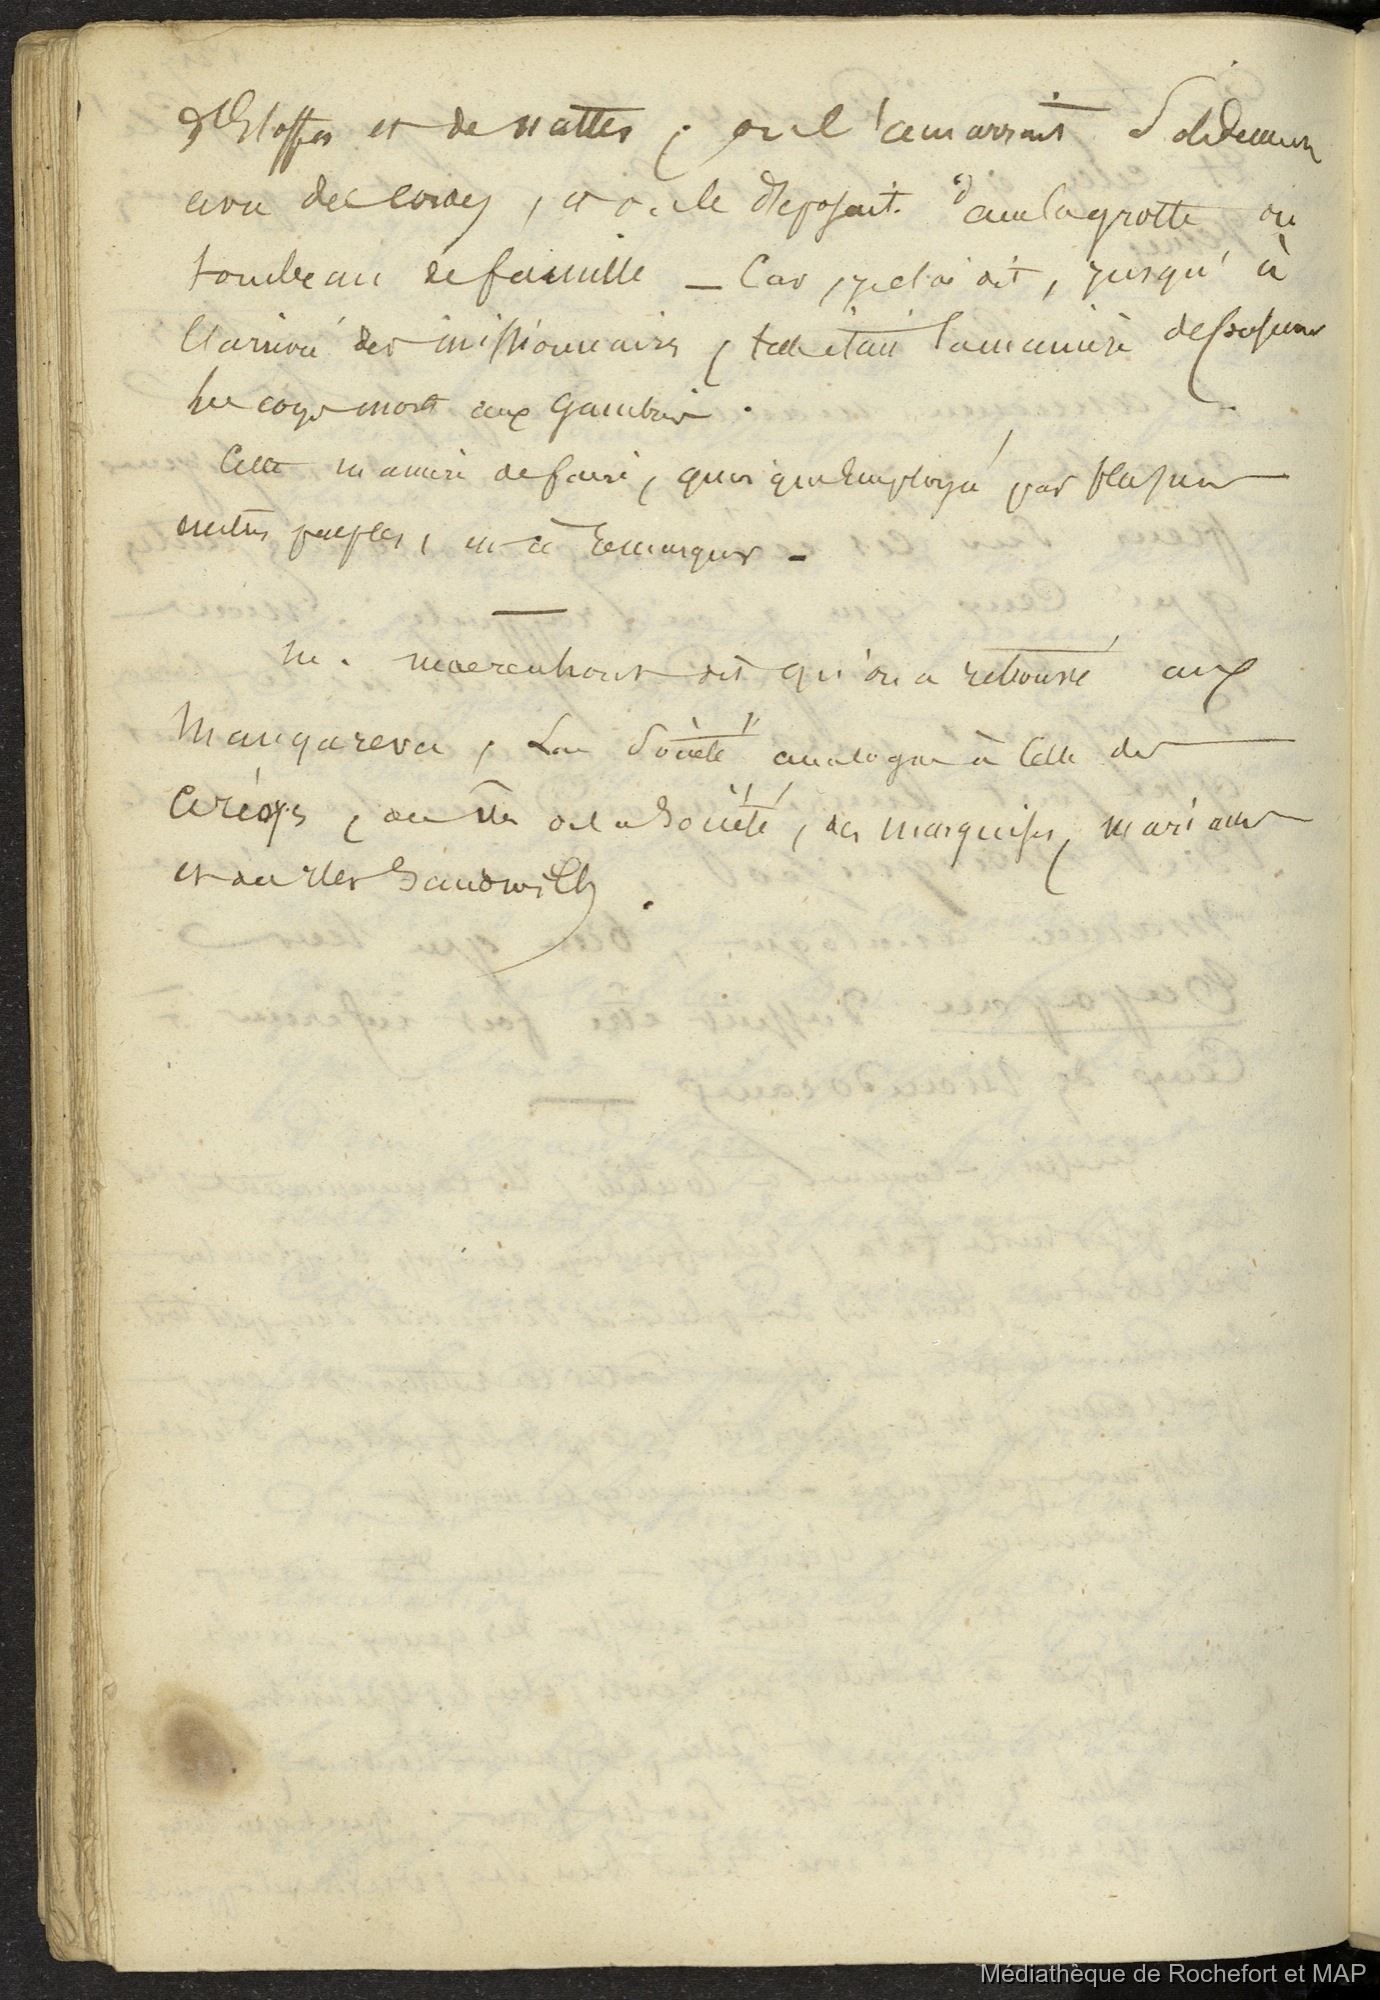 d'Etoffes et de nattes ; on l'amarrait Solidement
avec des cordes, et on le deposait dans la grotte ou
tombeau de famille — Car, je l'ai dit, jusqu'à
l'arrivée des missionnaires, telle était la manière de
les corps morts aux Gambier.
Cette manière de faire, quoique Employée par plusieurs
autres peuples, est à Remarquer —
M. Moerenhout dit qu'on a retrouvé aux
Mangareva, une Société analogue à Celle des
Aréoys, aux îles de la Société, des Marquises, Mariannes
et aux îles Sandwich.
Médiathèque de Rochefort et MAP